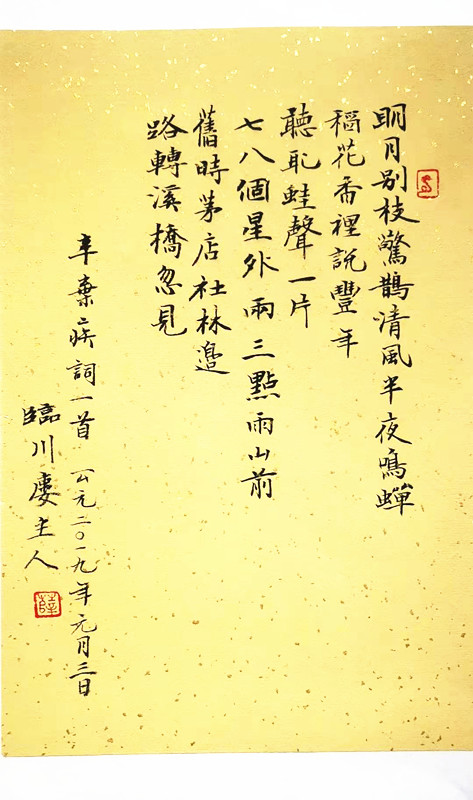 明月别枝驚鵲清風半夜鳴蟬
稻花香裡說豐年
聽取蛙聲一片
七八個星外兩三點雨山前
舊時茅店社林邊
路轉溪橋忽見
辛棄疾詞一首 公元二〇一九年元月三日
臨川廔主人
薛